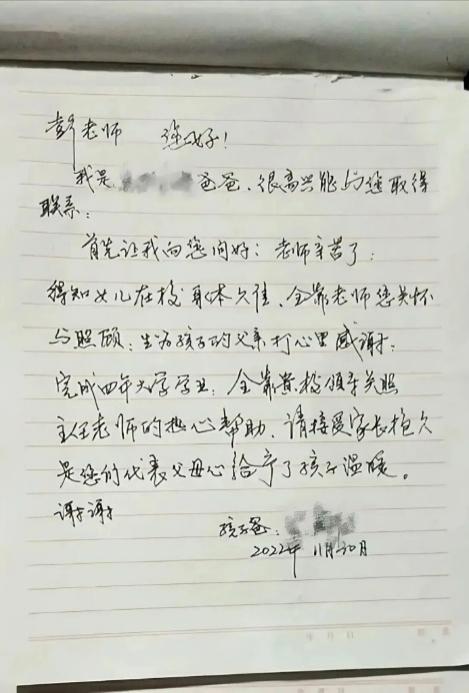 彭老师 您好!
我是 爸爸、很高兴能与您取得
联系:
首先让我向您问好:老师辛苦了:
得知女儿在校身体欠佳、全靠老师您关怀
与照顾:生为孩子的父亲打心里感谢:
完成四年大学学业:全靠贵校领导关照
主任老师的热心帮助、请接受家长抱欠
是您们代表父母心给予了孩子温暖。
谢谢
孩子爸:
2022年 11月20日
年 月 日